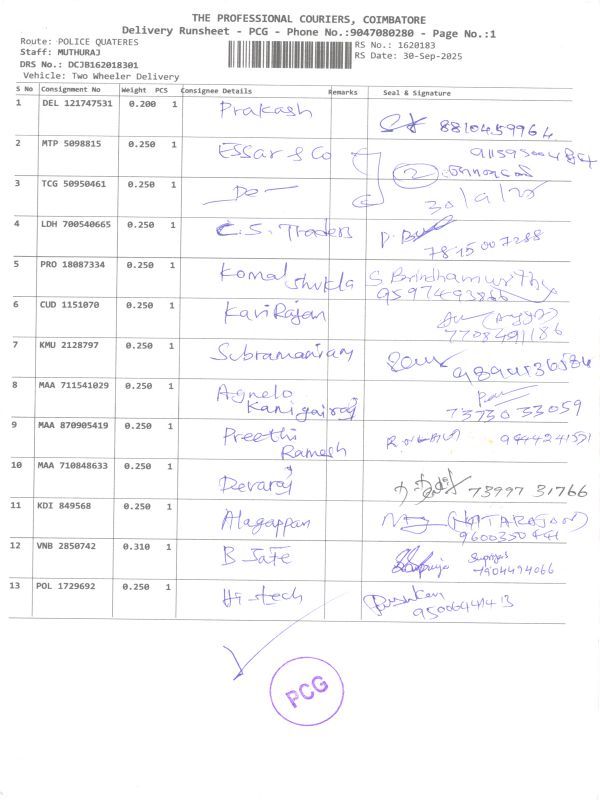 THE PROFESSIONAL COURIERS, COIMBATORE
Delivery Runsheet - PCG - Phone No.:9047080280 - Page No.:1
Route: POLICE QUATERES
Staff: MUTHURAJ
DRS No.: DCJB162018301
Vehicle: Two Wheeler Delivery
RS No.: 1620183
RS Date: 30-Sep-2025
S No Consignment No Weight PCS Consignee Details Remarks Seal & Signature
1 DEL 121747531 0.200 1 Prakash 8810459964
2 MTP 5098815 0.250 1 Essar & Co 2
3 TCG 50950461 0.250 1 - Do - 30/9/25
4 LDH 700540665 0.250 1 C.S. Traders
7815007288
5 PRO 18087334 0.250 1 Komal Shukla S. Brindhamurthy
9597493866
6 CUD 1151070 0.250 1 KaviRajan
7708491186
7 KMU 2128797 0.250 1 Subramaniam
8 MAA 711541029 0.250 1 Agnelo
Kanigairaj 73730 33059
9 MAA 870905419 0.250 1 Preethi
Ramesh
10 MAA 710848633 0.250 1 Devaraj 73997 31766
11 KDI 849568 0.250 1 Alagappan (NATARAJAN)
9600350441
12 VNB 2850742 0.310 1 B Safe Supriya
7904494066
13 POL 1729692 0.250 1 Hi-tech
9500641413
PCG